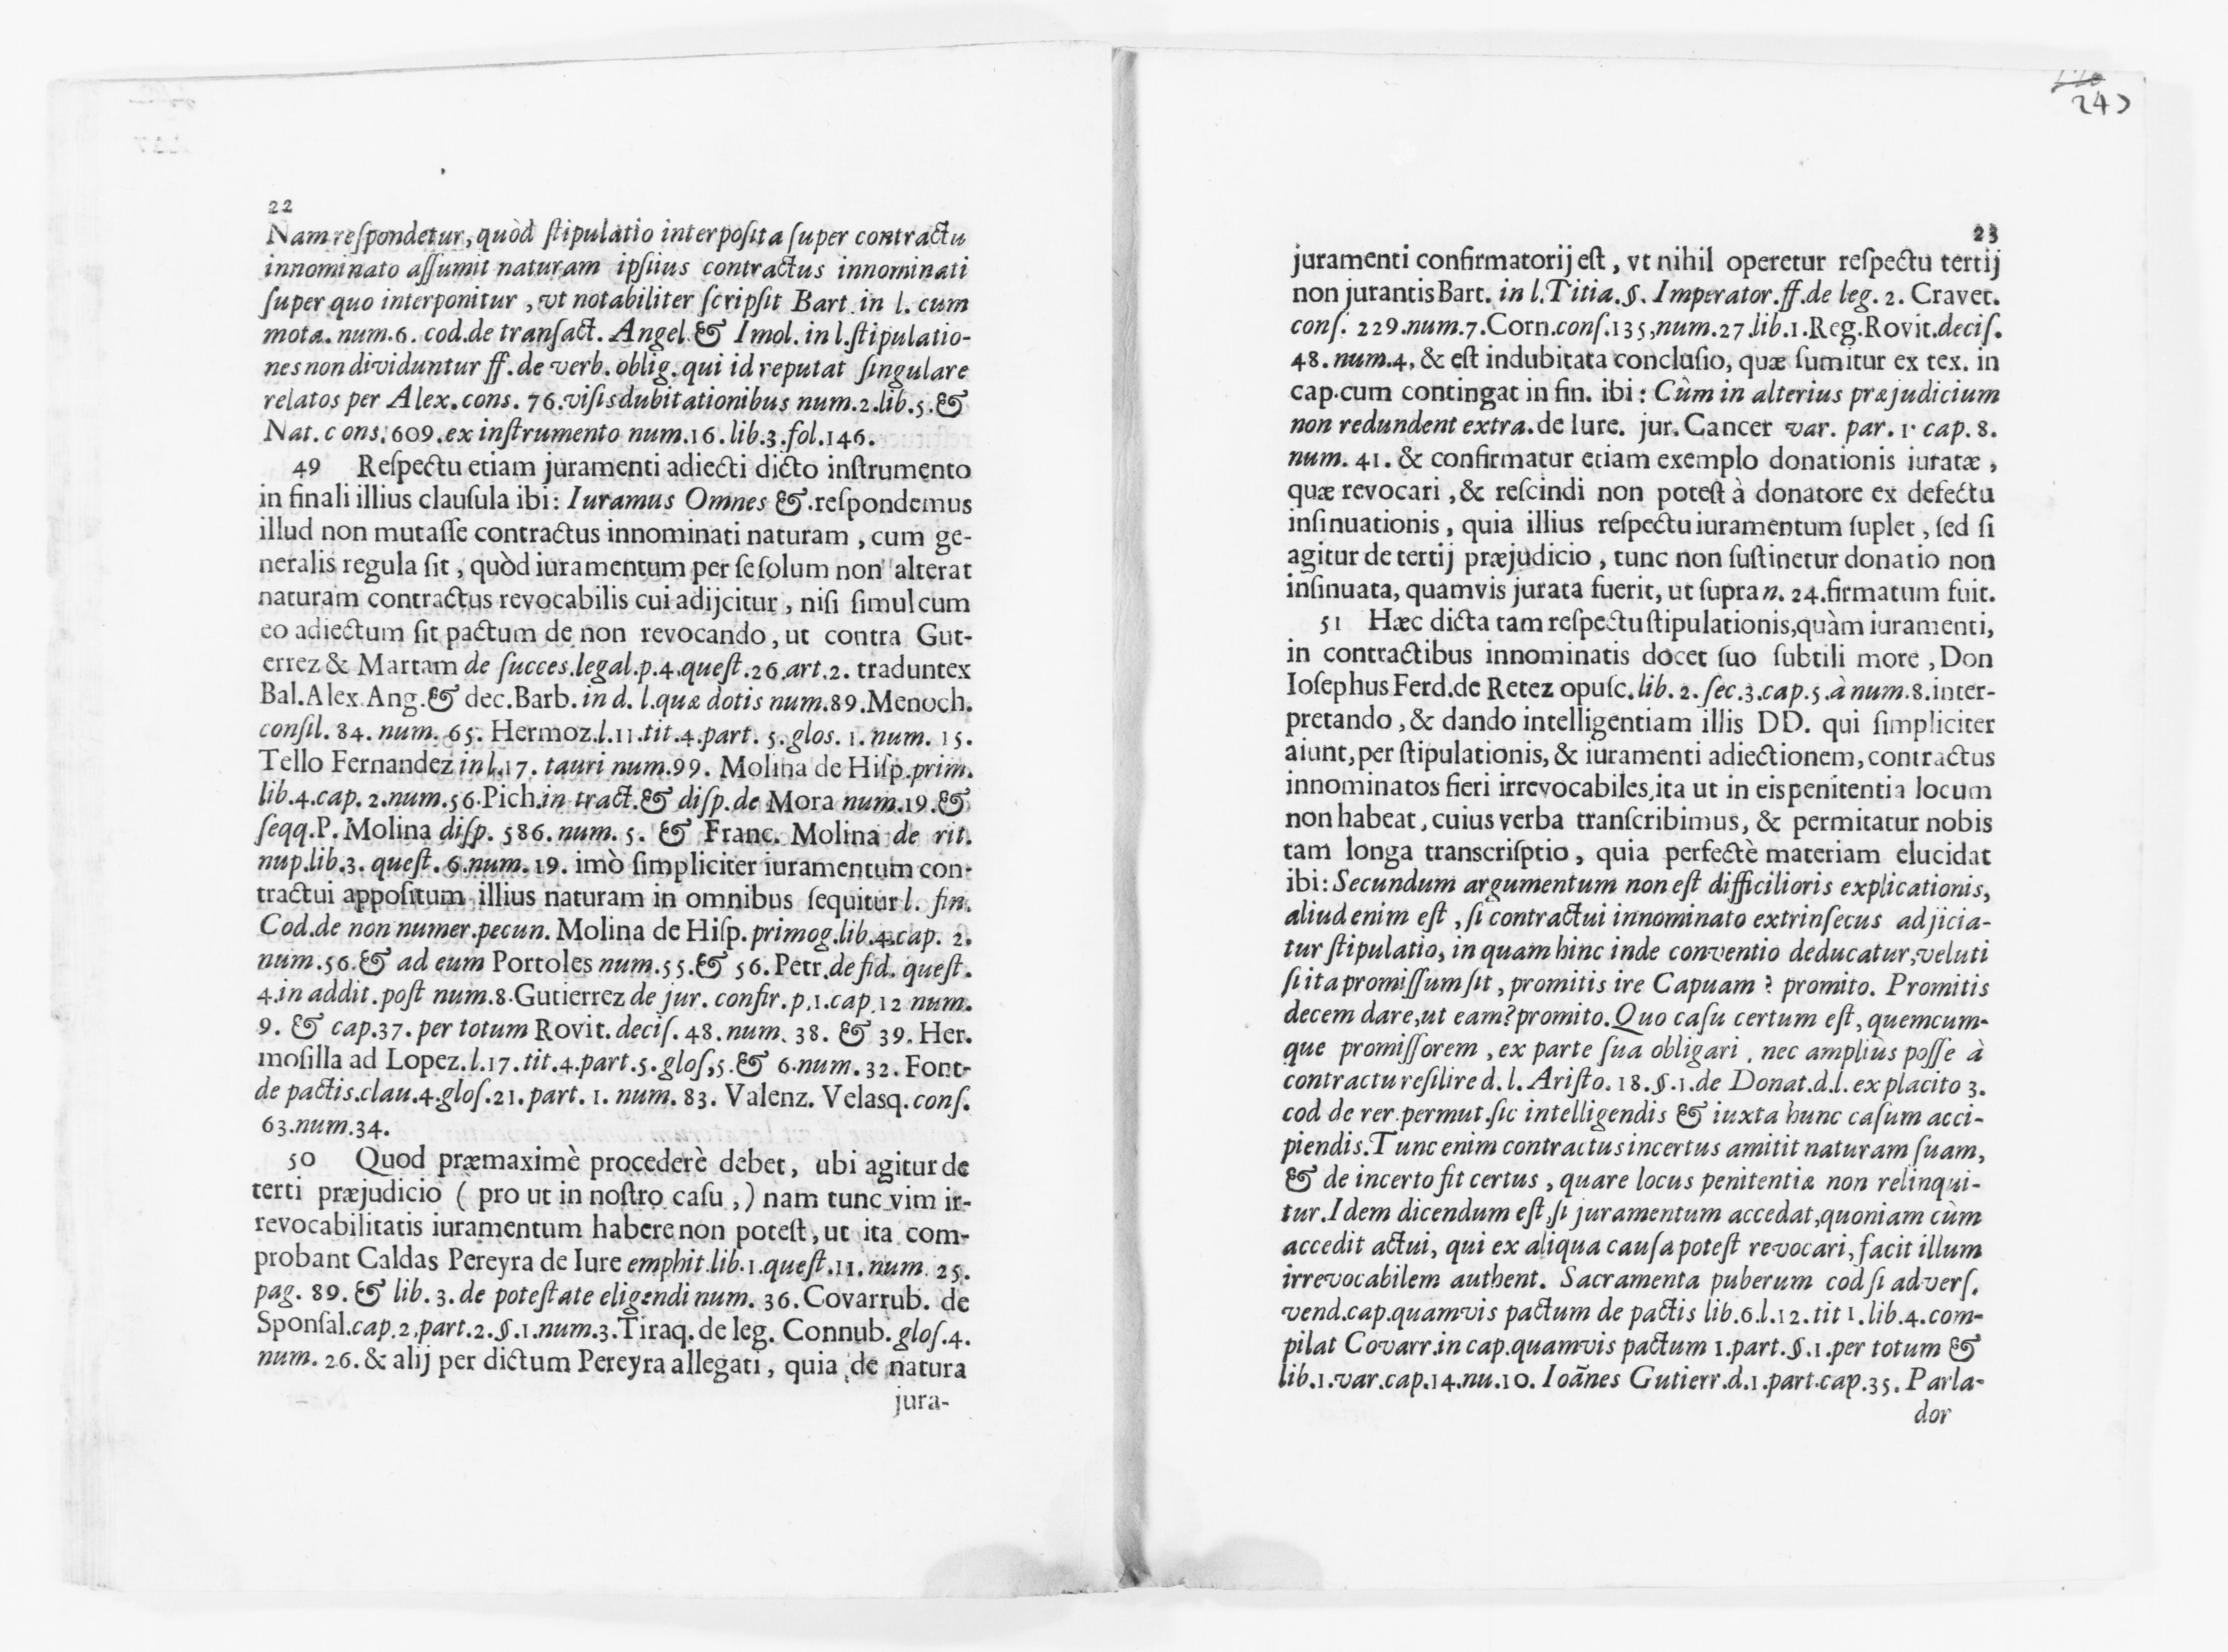 22
Nam reſpondetur, quòd ſtipulatio interpoſita ſuper contractu
innominato aſſumit naturam ipſiius contractus innominati
ſuper quo interponitur, vt notabiliter ſcripſit Bart. in l. cum
mota. num.6. cod.de tranſact. Angel. & Imol. in l.ſtipulatio-
nes non dividuntur ff. de verb. oblig. qui id reputat ſingulare
relatos per Alex. cons. 76. viſis dubitationibus num.2.lib.5.&
Nat. cons. 609. ex inſtrumento num.16.lib.3.fol.146.
49 Reſpectu etiam juramenti adiecti dicto inſtrumento
in finali illius clauſula ibi: Iuramus Omnes &. reſpondemus
illud non mutaſſe contractus innominati naturam, cum ge-
neralis regula ſit, quòd iuramentum per ſe ſolum non alterat
naturam contractus revocabilis cui adijcitur, niſi ſimul cum
eo adiectum ſit pactum de non revocando, ut contra Gut-
errez & Martam de ſucces.legal.p.4.queſt.26.art.2. traduntex
Bal.Alex.Ang.& dec.Barb. in d. l.quæ dotis num.89.Menoch.
conſil. 84. num. 65. Hermoz.l.11.tit.4.part. 5.glos. 1. num. 15.
Tello Fernandez in l.17. tauri num.99. Molina de Hiſp.prim.
lib.4.cap. 2.num.56.Pich.in tract.& diſp.de Mora num.19.&
ſeqq.P. Molina diſp. 586. num. 5. & Franc. Molina de rit.
nup.lib.3. queſt. 6.num. 19. imò ſimpliciter iuramentum con-
tractui appoſitum illius naturam in omnibus ſequitur l. fin.
Cod.de non numer.pecun. Molina de Hiſp. primog.lib.4.cap. 2.
num.56.& ad eum Portoles num.55.& 56. Petr.de fid. queſt.
4.in addit. poſt num.8.Gutierrez de jur. confir.p.1.cap.12 num.
9. & cap.37. per totum Rovit. deciſ. 48. num. 38. & 39. Her.
moſilla ad Lopez. l.17. tit.4.part.5.gloſ,5.& 6.num.32. Font-
de pactis.clau.4.gloſ.21.part. 1. num. 83. Valenz. Velasq. conſ.
63.num.34.
50 Quod præmaximè procederè debet, ubi agitur de
terti præjudicio (pro ut in noſtro caſu,) nam tunc vim ir-
revocabilitatis iuramentum habere non poteſt, ut ita com-
probant Caldas Pereyra de Iure emphit.lib.1.queſt.11.num. 25.
pag. 89. & lib. 3. de poteſtate eligendi num. 36. Covarrub. de
Sponſal.cap.2,part.2.§.1.num.3.Tiraq. de leg. Connub. gloſ.4.
num. 26. & alij per dictum Pereyra allegati, quia de natura
jura-
243
23
juramenti confirmatorij eſt, vt nihil operetur reſpectu tertij
non jurantis Bart. in l.Titia.§. Imperator.ff.de leg. 2. Cravet.
conſ. 229.num.7.Corn.conſ.135,num.27.lib.1.Reg.Rovit.deciſ.
48. num.4, & eſt indubitata concluſio, quæ ſumitur ex tex. in
cap.cum contingat in fin. ibi: Cùm in alterius præjudicium
non redundent extra. de Iure. jur. Cancer var. par. 1. cap. 8.
num. 41. & confirmatur etiam exemplo donationis iuratæ,
quæ revocari, & reſcindi non poteſt à donatore ex defectu
inſinuationis, quia illius reſpectu iuramentum ſuplet, ſed ſi
agitur de tertij præjudicio, tunc non ſuſtinetur donatio non
inſinuata, quamvis jurata fuerit, ut ſupra n. 24.firmatum fuit.
51 Hæc dicta tam reſpectu ſtipulationis,quàm iuramenti,
in contractibus innominatis docet ſuo ſubtili more, Don
Ioſephus Ferd.de Retez opuſc. lib. 2. ſec.3.cap.5.à num.8.inter-
pretando, & dando intelligentiam illis DD. qui ſimpliciter
aiunt, per ſtipulationis, & iuramenti adiectionem, contractus
innominatos fieri irrevocabiles,ita ut in eis penitentia locum
non habeat, cuius verba tranſcribimus, & permitatur nobis
tam longa tranſcriſptio, quia perfectè materiam elucidat
ibi: Secundum argumentum non eſt difficilioris explicationis,
aliud enim eſt, ſi contractui innominato extrinſecus adjicia-
tur ſtipulatio, in quam hinc inde conventio deducatur,veluti
ſi ita promiſſum ſit, promitis ire Capuam? promito. Promitis
decem dare,ut eam?promito.Quo caſu certum eſt, quemcum-
que promiſſorem, ex parte ſua obligari, nec ampliùs poſſe à
contractu reſilire d. l. Ariſto. 18.§.1.de Donat.d.l. ex placito 3.
cod de rer.permut.ſic intelligendis & iuxta hunc caſum acci-
piendis.Tunc enim contractus incertus amitit naturam ſuam,
& de incerto fit certus, quare locus penitentiæ non relinqui-
tur.Idem dicendum eſt,ſi juramentum accedat,quoniam cùm
accedit actui, qui ex aliqua cauſa poteſt revocari, facit illum
irrevocabilem authent. Sacramenta puberum cod ſi adverſ.
vend.cap.quamvis pactum de pactis lib.6.l.12.tit 1.lib.4.com-
pilat Covarr.in cap.quamvis pactum 1.part.§.1.per totum &
lib.1.var.cap.14.nu.10. Ioãnes Gutierr.d.1.part.cap.35. Parla-
dor